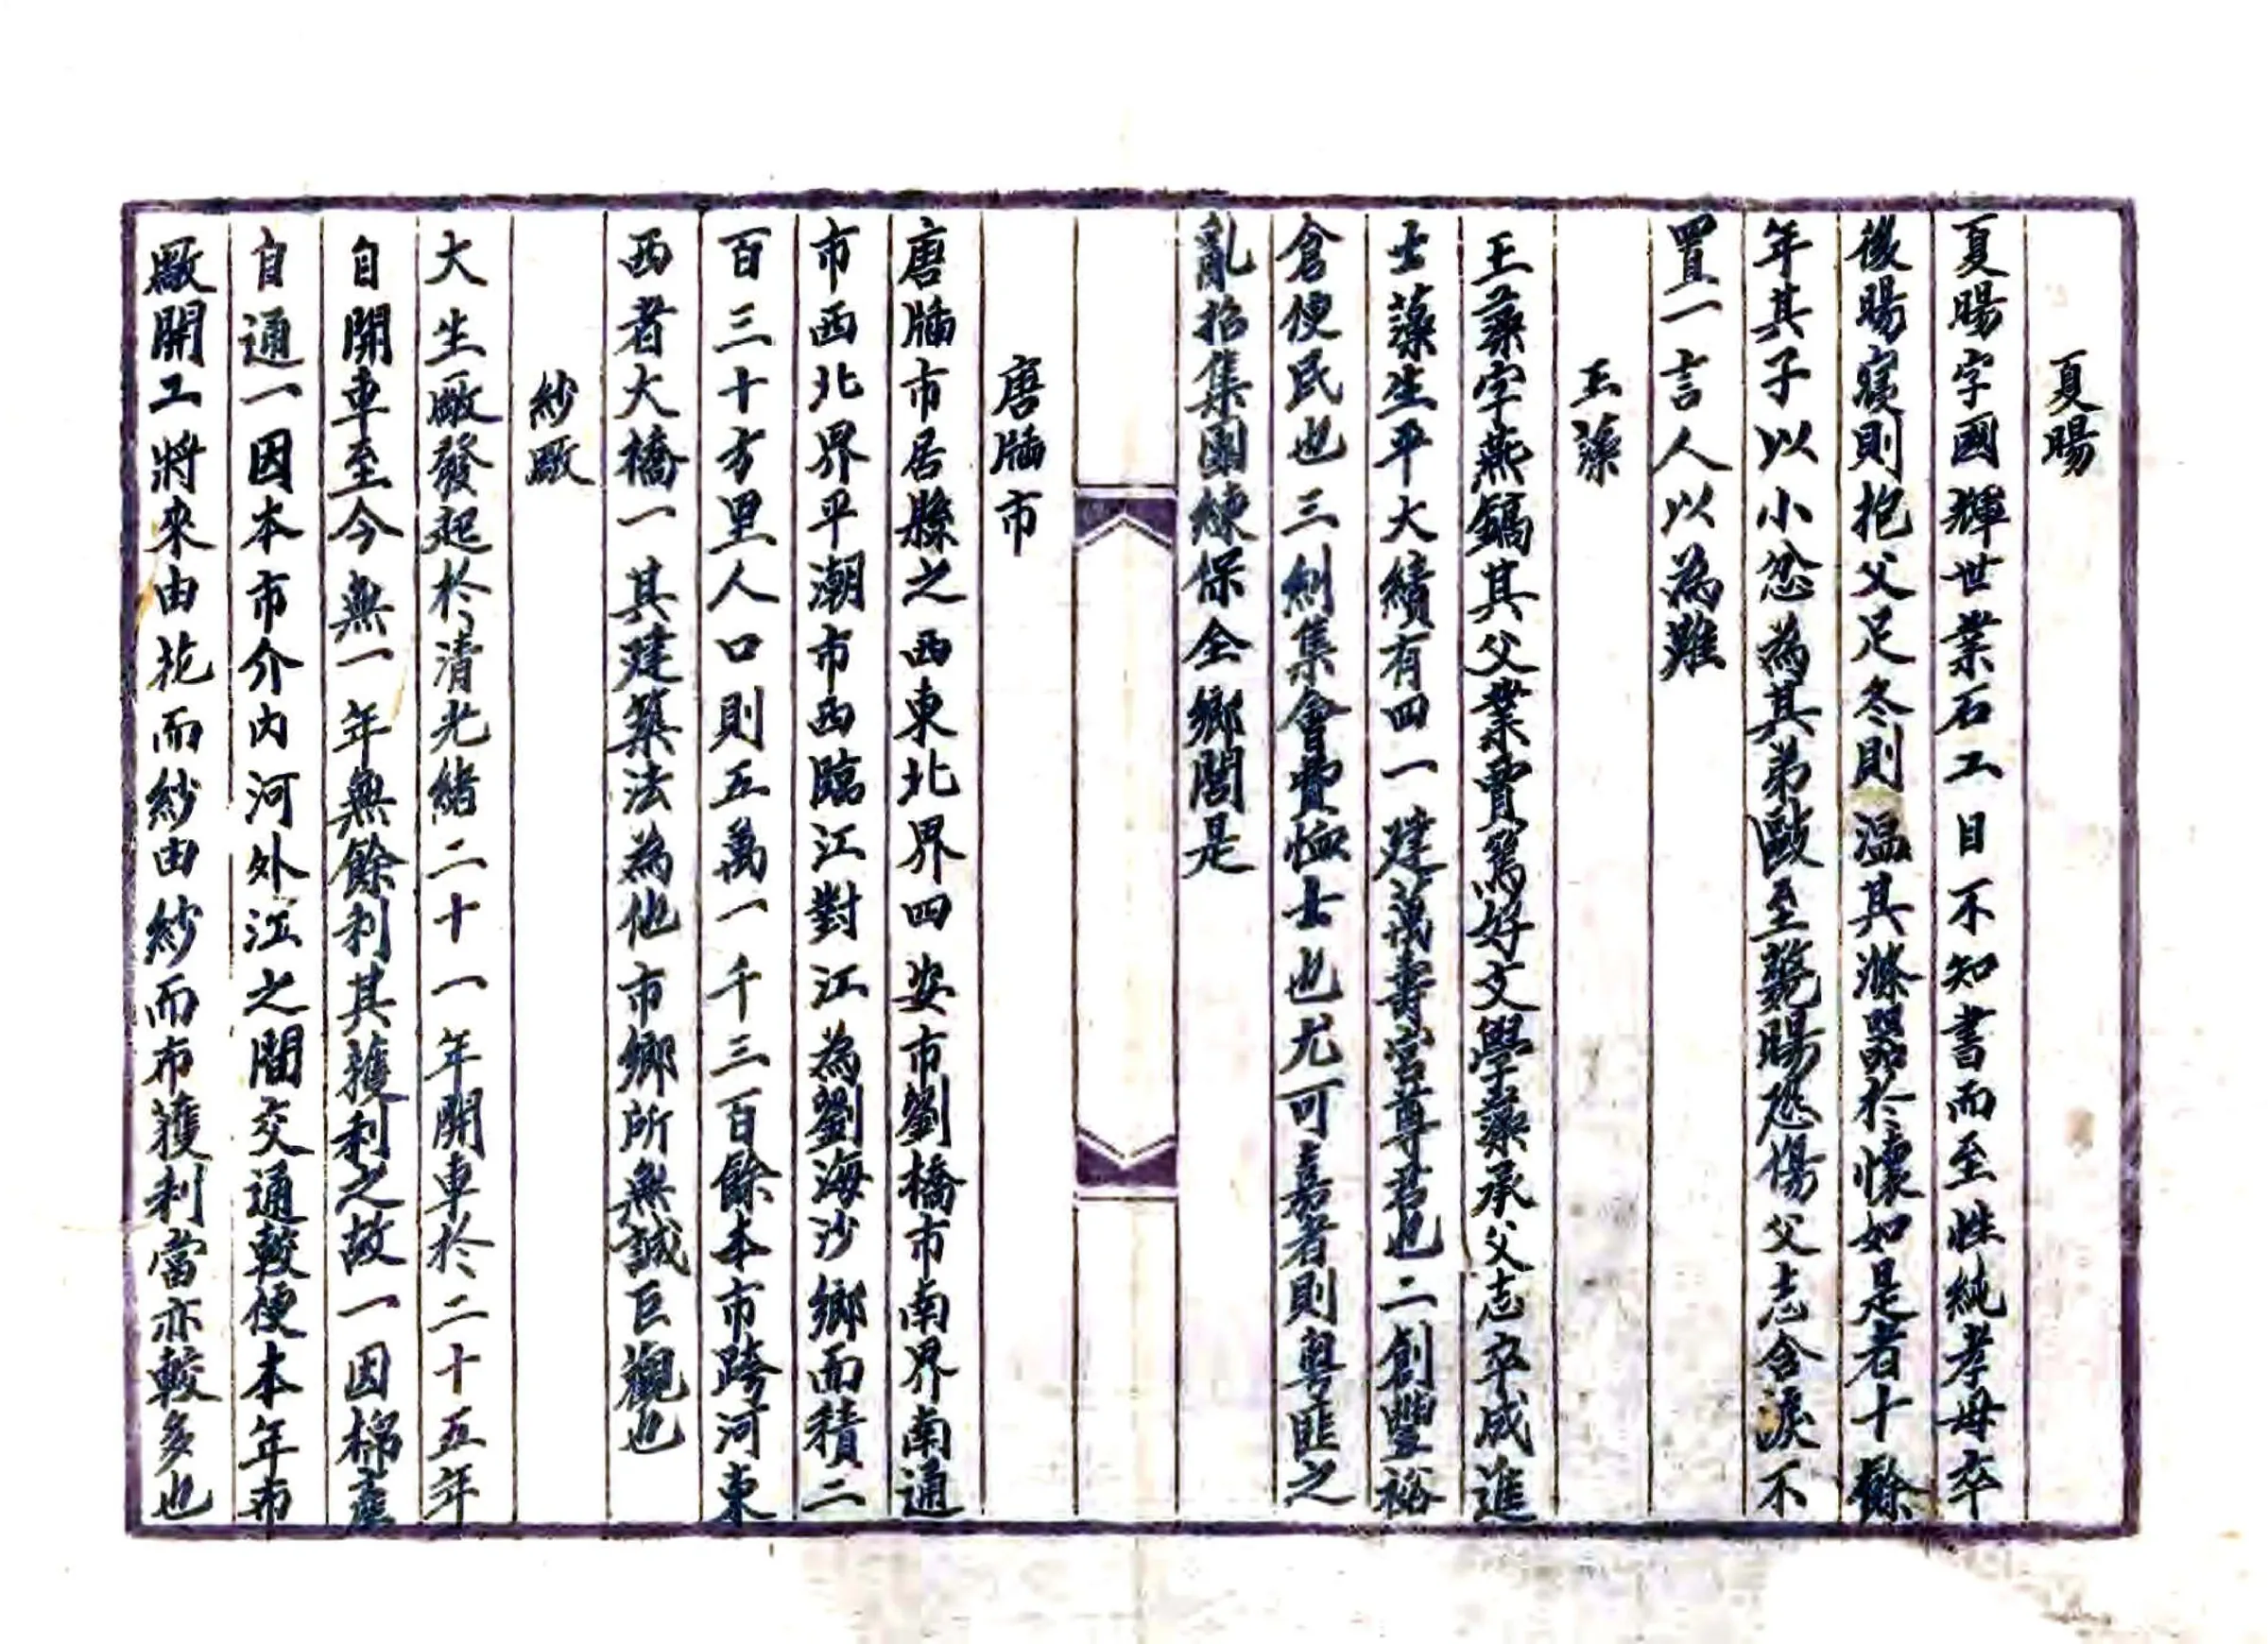 夏暘
夏暘字國輝世業石工目不知書而至性純孝母卒
後暘寢則抱父足冬則溫其滌器於懷如是者十餘
年其子以小忿為其弟毆至斃暘恐傷父志含淚不
置一言人以為難
王藻
王藻字燕鎬其父業賈篤好文學藻承父志卒成進
士藻生平大績有四一建萬壽宮尊君也二創豐裕
倉便民也三糾集會費恤士也尤可嘉者則粵匪之
亂招集團練保全鄉閭是
唐牐市
唐牐市居縣之西東北界四安市劉橋市南界南通
市西北界平潮市西臨江對江為劉海沙鄉面積二
百三十方里人口則五萬一千三百餘本市跨河東
西者大橋一其建築法為他市鄉所無誠巨觀也
紗廠
大生廠發起於清光緒二十一年開車於二十五年
自開車至今無一年無餘利其獲利之故一因棉產
自通一因本市介內河外江之間交通較便本年布
廠開工將來由花而紗由紗而布獲利當亦較多也